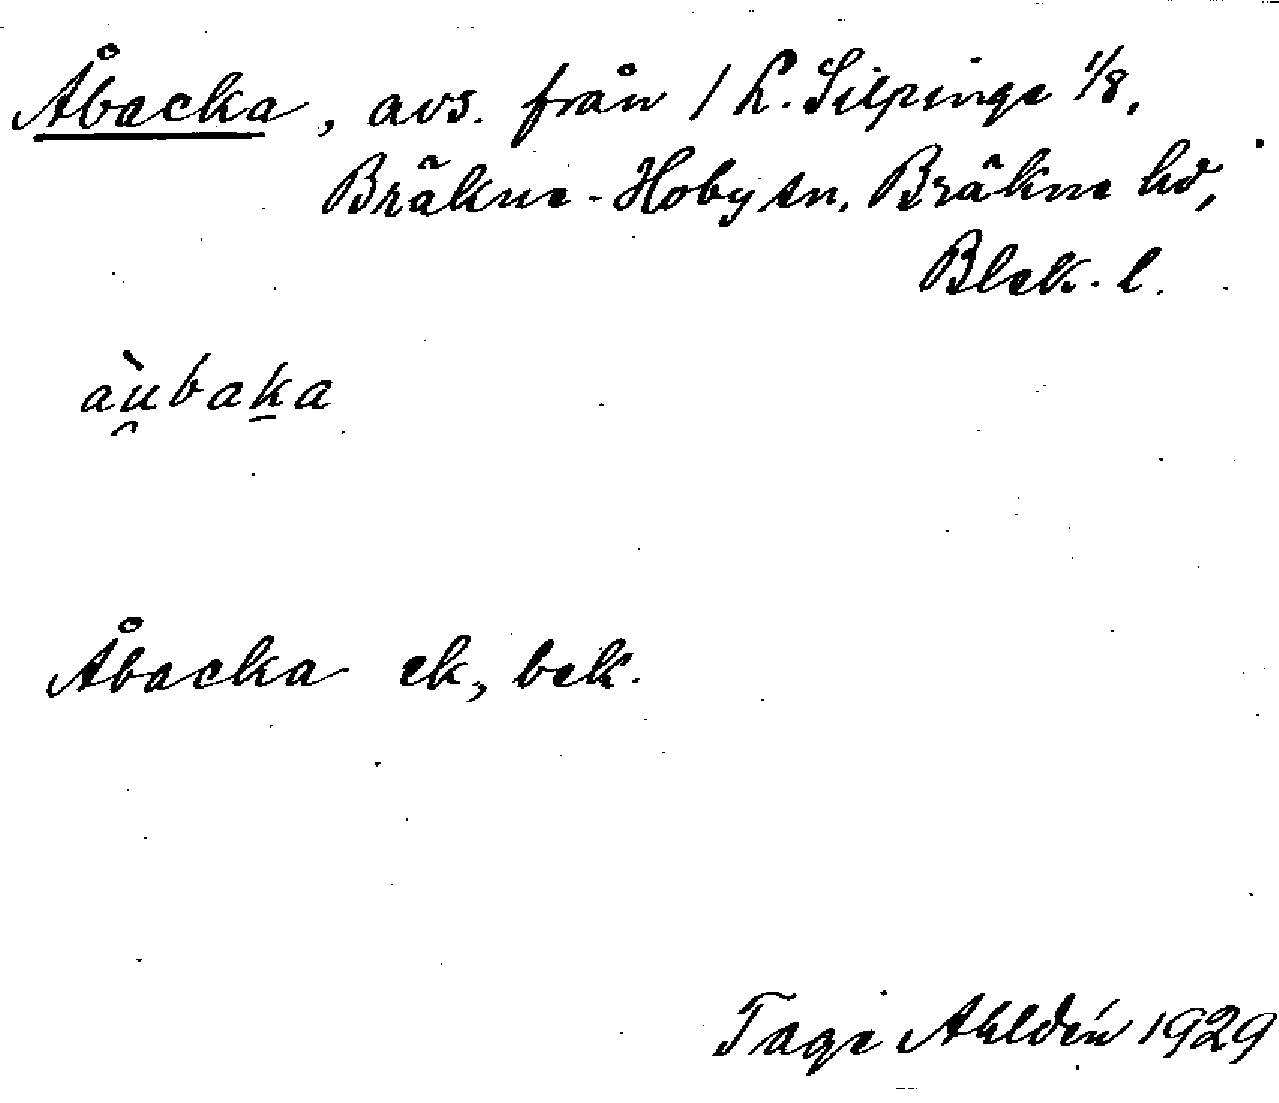 Åbacka, avs. från 1 L. Silpinge 1/8,
Bräkne-Hoby sn, Bräkne hd,
Blek. l.
aù̯baḵa
Åbacka ek, bek.
Tage Ahldén 1929